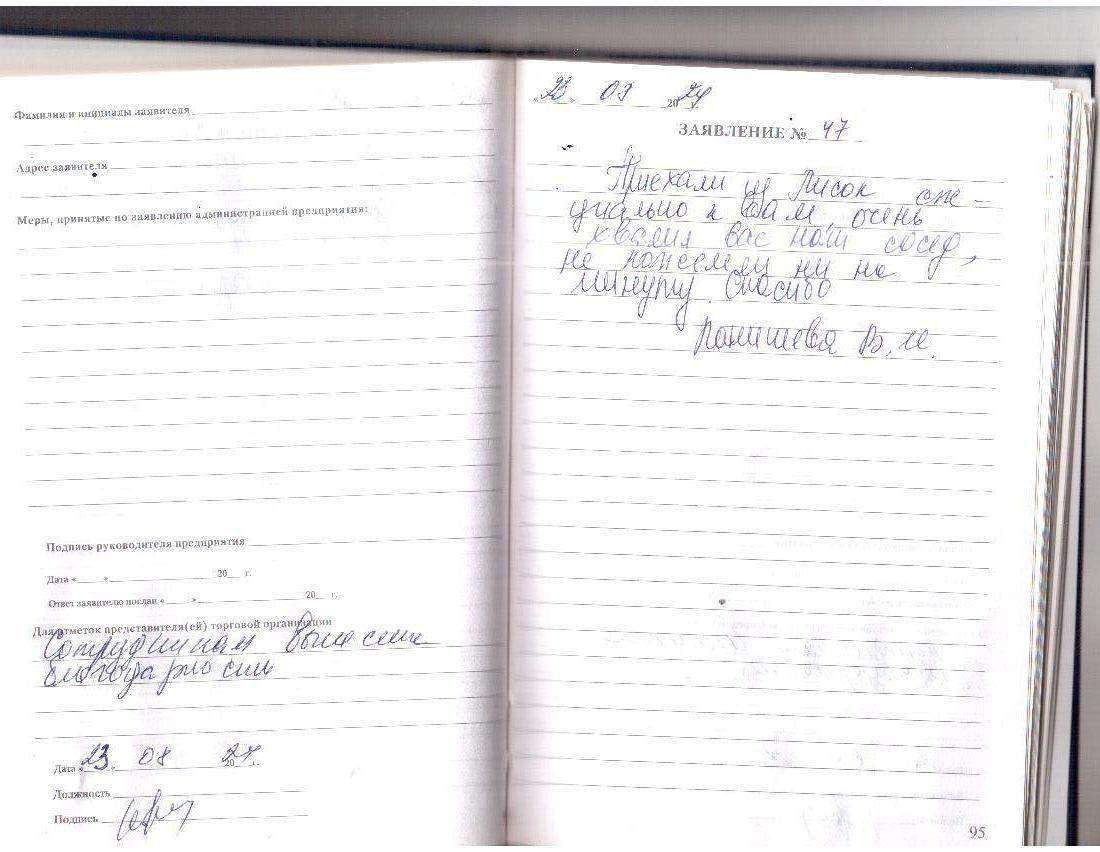 Фамилия и инициалы заявителя
Адрес заявителя
Меры, принятые по заявлению администрацией предприятия:
Подпись руководителя предприятия
Дата « » 20 г.
Ответ заявителю послан « » 20 г.
Для отметок представителя(ей) торговой организации
Сотрудникам вынесли
благодарности
Дата «23» 08 2024 г.
Должность
Подпись
«23» 2024
ЗАЯВЛЕНИЕ № 47
Приехали из Лисок спе-
циально к вам, очень
хвалил вас наш сосед,
не пожелели ни на
минуту. Спасибо
В. И.
95